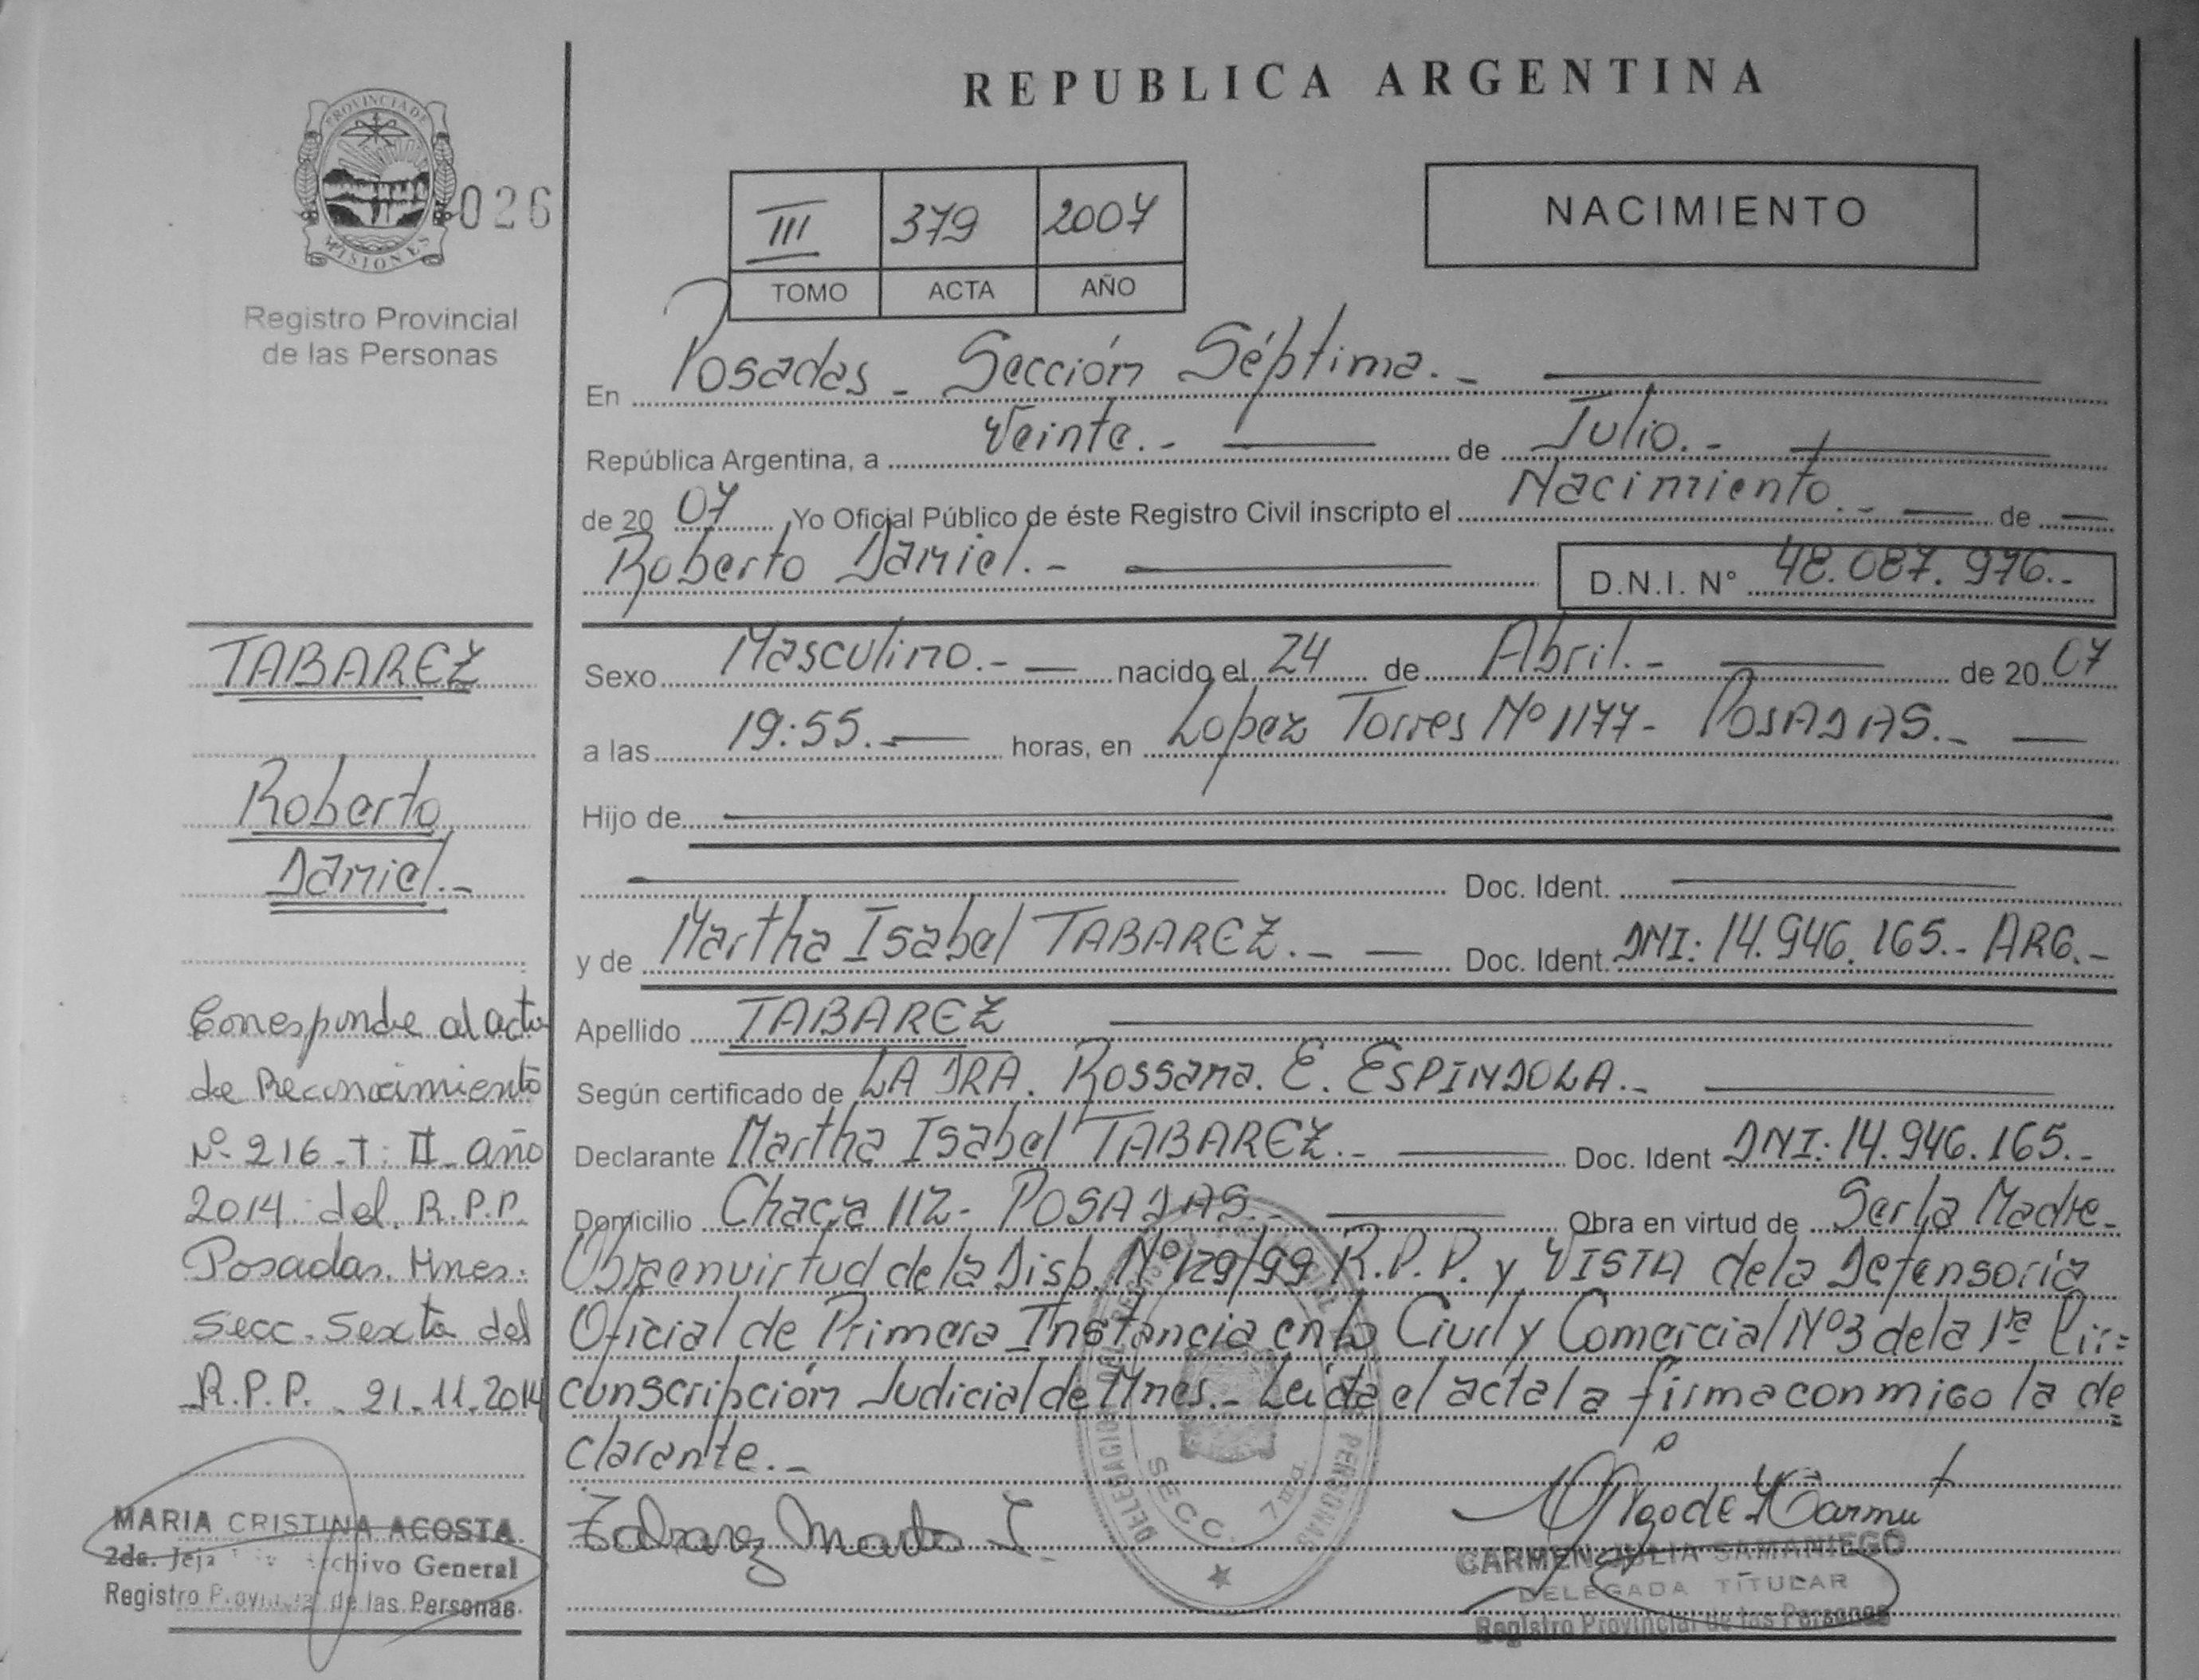 REPUBLICA ARGENTINA
PROVINCIA DE
MISIONES
026
Registro Provincial
de las Personas
III 379 2007
TOMO ACTA AÑO
NACIMIENTO
En Posadas - Sección Séptima.-
República Argentina, a Veinte.- de Julio.-
de 2007 Yo Oficial Público de éste Registro Civil inscripto el Nacimiento.- de
Roberto Daniel.- D.N.I. N° 48.087.976.-
Sexo Masculino.- nacido el 24 de Abril.- de 2007
a las 19:55.- horas, en Lopez Torres Nº 1177- POSADAS.-
Hijo de
Doc. Ident.
y de Martha Isabel TABAREZ.- Doc. Ident. DNI: 14.946.165.- ARG.-
Apellido TABAREZ
Según certificado de LA DRA. Rossana. E. ESPINDOLA.-
Declarante Martha Isabel TABAREZ.- Doc. Ident DNI: 14.946.165.-
Domicilio Chacra 112- POSADAS.- Obra en virtud de Ser la Madre-
Obra en virtud de la Disp. Nº 129/99 R.P.P. y VISTA de la Defensoria
Oficial de Primera Instancia en lo Civil y Comercial Nº3 de la 1ra Cir=
cunscripción Judicial de Mnes.- Leida el acta la firma conmigo la de=
clarante.-
TABAREZ
Roberto
Daniel.-
Corresponde al acta
de Reconocimiento
Nº 216 - T: II - año
2014 del R.P.P.
Posadas. Mnes.
Secc. Sexta del
R.P.P. - 21-11-2014
MARIA CRISTINA ACOSTA
2da. Archivo General
Registro Provincial de las Personas
Tabarez Marta I.
SECC. 7ma.
CARMEN JULIA SAMANIEGO
DELEGADA TITULAR
Registro Provincial de las Personas